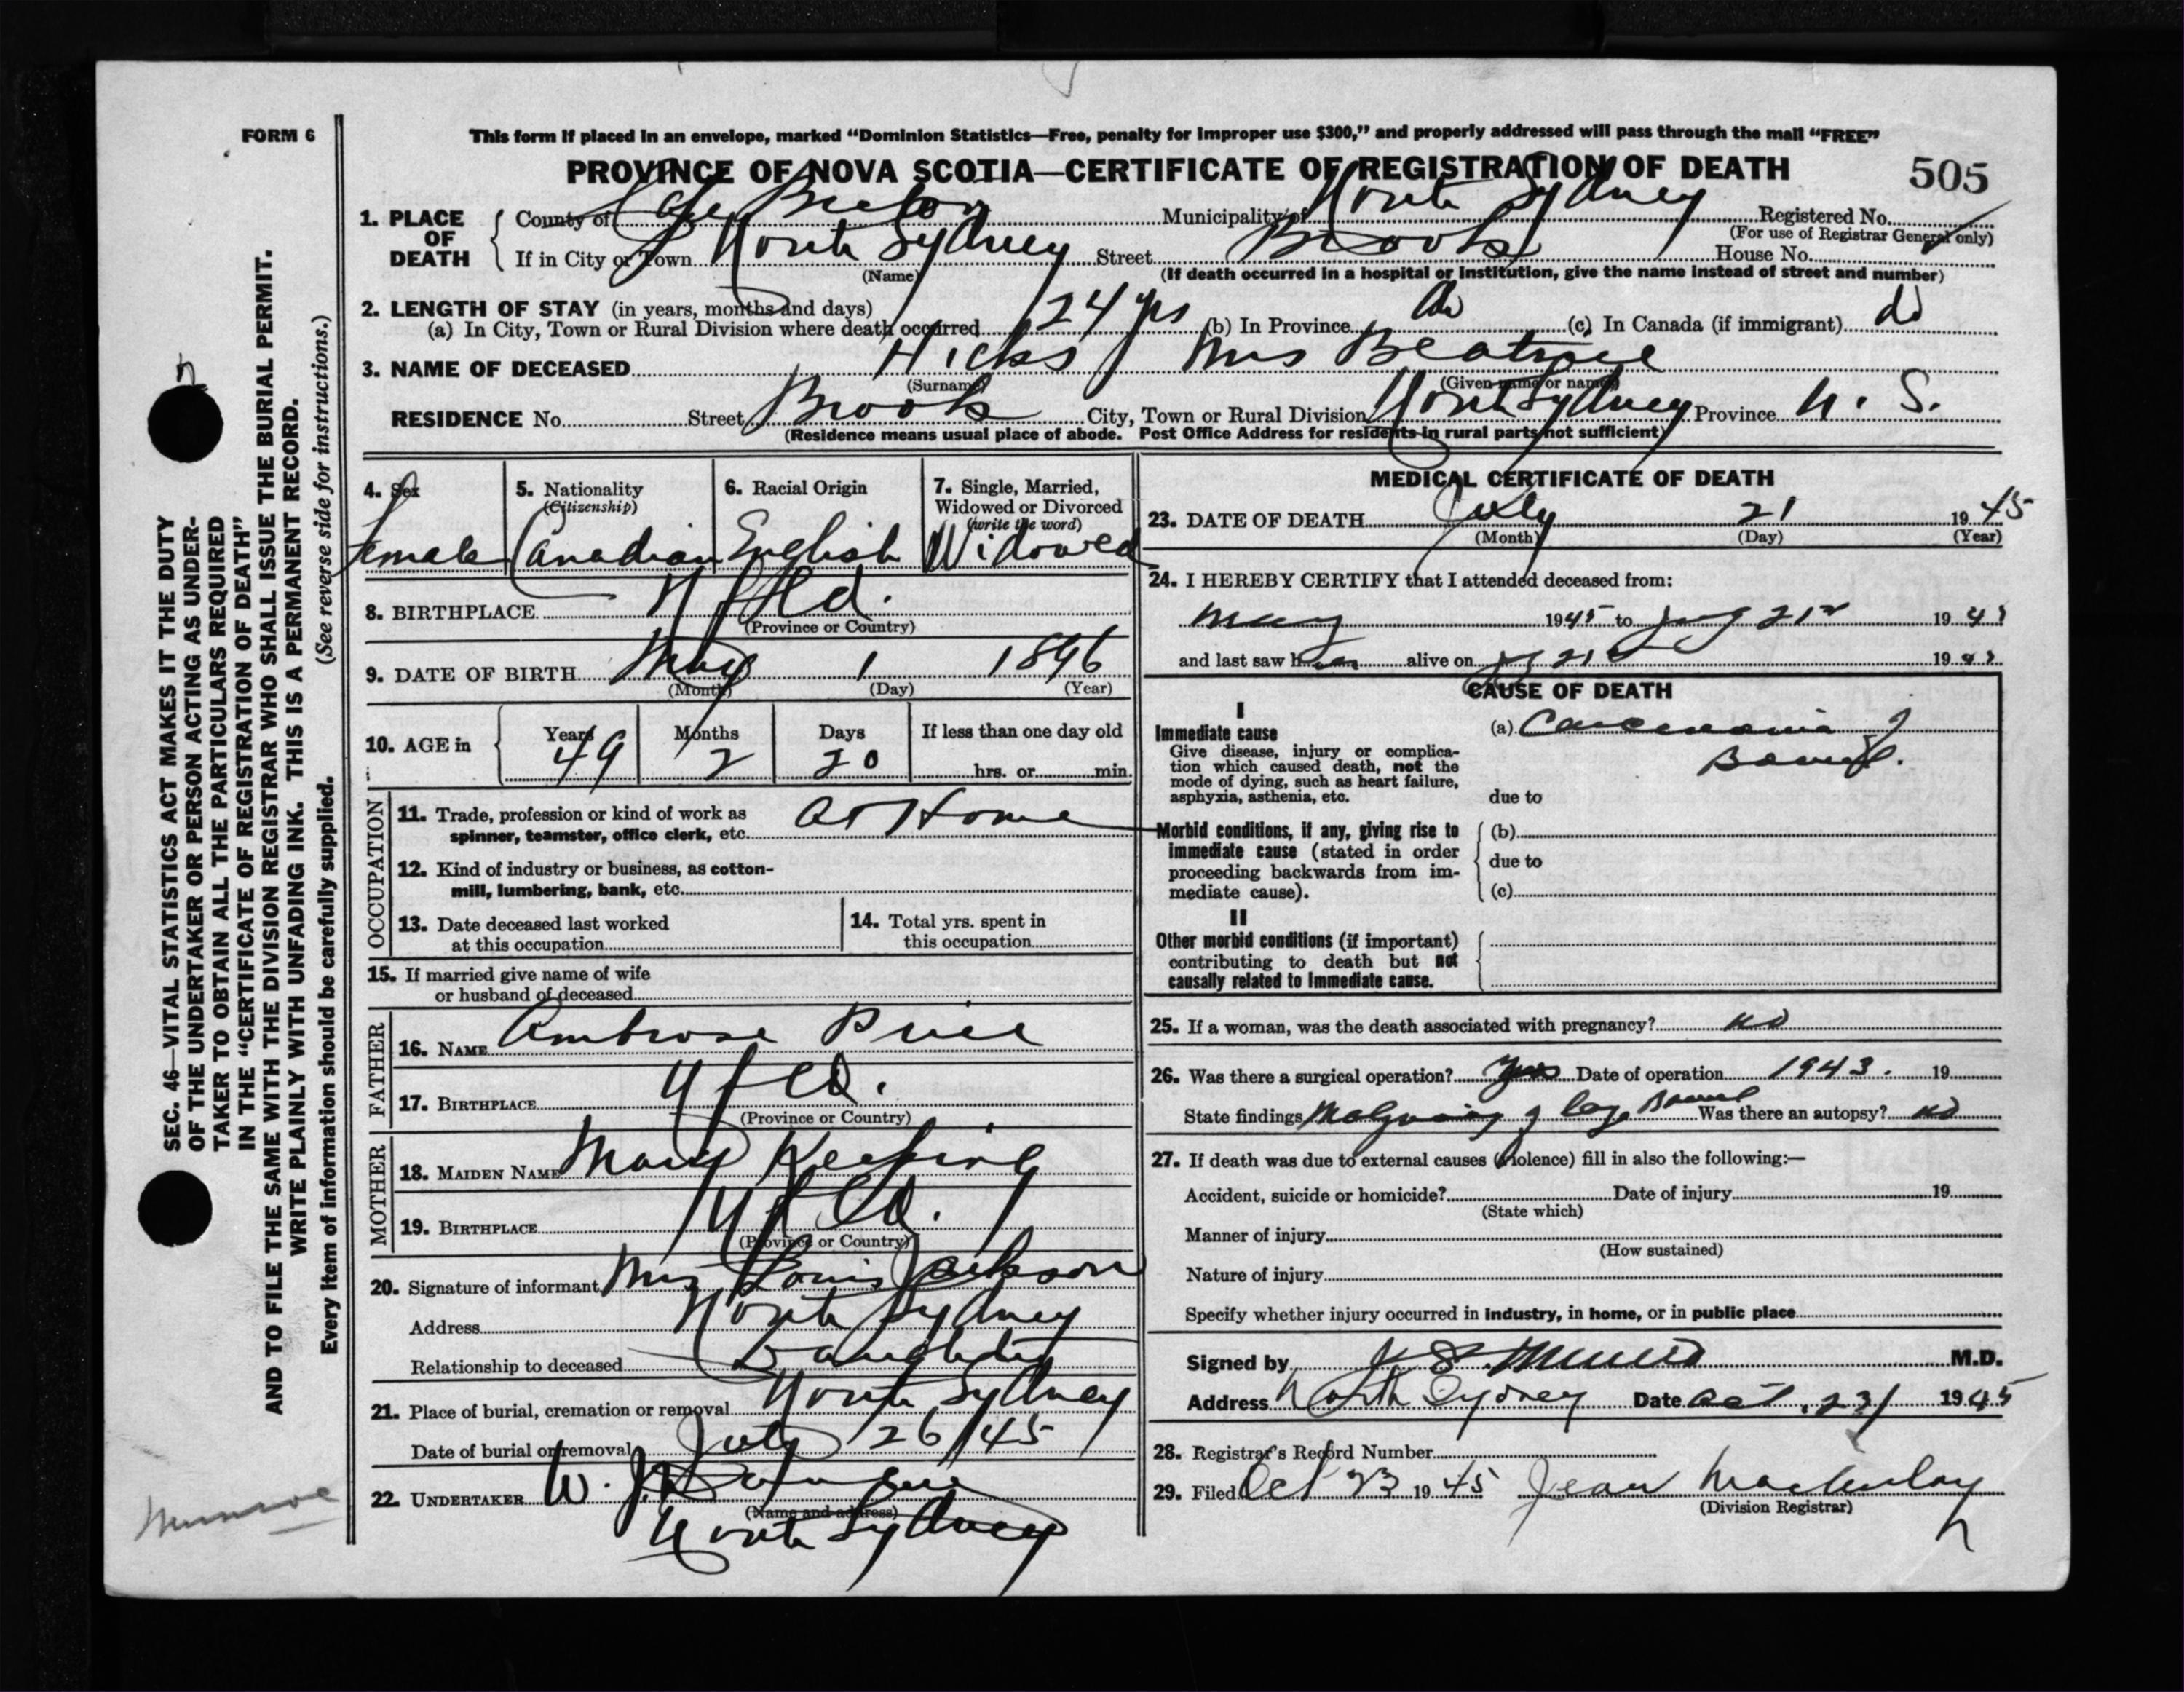 FORM 6
This form if placed in an envelope, marked “Dominion Statistics—Free, penalty for improper use $300,” and properly addressed will pass through the mail “FREE”
PROVINCE OF NOVA SCOTIA—CERTIFICATE OF REGISTRATION OF DEATH
505
1. PLACE OF DEATH
County of Cape Breton Municipality of North Sydney Registered No.
(For use of Registrar General only)
If in City or Town North Sydney Street Brook House No.
(Name) (If death occurred in a hospital or institution, give the name instead of street and number)
2. LENGTH OF STAY (in years, months and days)
(a) In City, Town or Rural Division where death occurred 24 yrs (b) In Province do (c) In Canada (if immigrant) do
3. NAME OF DECEASED Hicks Mrs Beatrice
(Surname) (Given name or names)
RESIDENCE No. Street Brook City, Town or Rural Division North Sydney Province N. S.
(Residence means usual place of abode. Post Office Address for residents in rural parts not sufficient)
4. Sex
Female
5. Nationality
(Citizenship)
Canadian
6. Racial Origin
English
7. Single, Married,
Widowed or Divorced
(write the word)
Widowed
8. BIRTHPLACE Nfld.
(Province or Country)
9. DATE OF BIRTH May 1 1896
(Month) (Day) (Year)
10. AGE in
Years Months Days If less than one day old
49 2 20 hrs. or min.
OCCUPATION
11. Trade, profession or kind of work as
spinner, teamster, office clerk, etc. at Home
12. Kind of industry or business, as cotton-
mill, lumbering, bank, etc.
13. Date deceased last worked
at this occupation
14. Total yrs. spent in
this occupation
15. If married give name of wife
or husband of deceased
FATHER
16. NAME Ambrose Price
17. BIRTHPLACE Nfld.
(Province or Country)
MOTHER
18. MAIDEN NAME Mary Keeping
19. BIRTHPLACE Nfld.
(Province or Country)
20. Signature of informant Mrs Louis Jackson
Address North Sydney
Relationship to deceased Daughter
21. Place of burial, cremation or removal North Sydney
Date of burial or removal July 26/45
22. UNDERTAKER W. J.
(Name and address)
North Sydney
MEDICAL CERTIFICATE OF DEATH
23. DATE OF DEATH July 21 1945
(Month) (Day) (Year)
24. I HEREBY CERTIFY that I attended deceased from:
May 1945 to July 21 194
and last saw her alive on 21 194
CAUSE OF DEATH
I
Immediate cause
Give disease, injury or complica-
tion which caused death, not the
mode of dying, such as heart failure,
asphyxia, asthenia, etc.
(a) Carcinoma of
Bowel.
due to
Morbid conditions, if any, giving rise to
immediate cause (stated in order
proceeding backwards from im-
mediate cause).
(b)
due to
(c)
II
Other morbid conditions (if important)
contributing to death but not
causally related to immediate cause.
25. If a woman, was the death associated with pregnancy? no
26. Was there a surgical operation? Yes Date of operation 1943. 19
State findings of Bowel Was there an autopsy? no
27. If death was due to external causes (violence) fill in also the following:—
Accident, suicide or homicide? Date of injury 19
(State which)
Manner of injury
(How sustained)
Nature of injury
Specify whether injury occurred in industry, in home, or in public place
Signed by M.D.
Address North Sydney Date Oct. 23/ 1945
28. Registrar's Record Number
29. Filed Oct 23 1945 Jean
(Division Registrar)
SEC. 46—VITAL STATISTICS ACT MAKES IT THE DUTY
OF THE UNDERTAKER OR PERSON ACTING AS UNDER-
TAKER TO OBTAIN ALL THE PARTICULARS REQUIRED
IN THE “CERTIFICATE OF REGISTRATION OF DEATH”
AND TO FILE THE SAME WITH THE DIVISION REGISTRAR WHO SHALL ISSUE THE BURIAL PERMIT.
WRITE PLAINLY WITH UNFADING INK. THIS IS A PERMANENT RECORD.
Every item of information should be carefully supplied. (See reverse side for instructions.)
Munroe